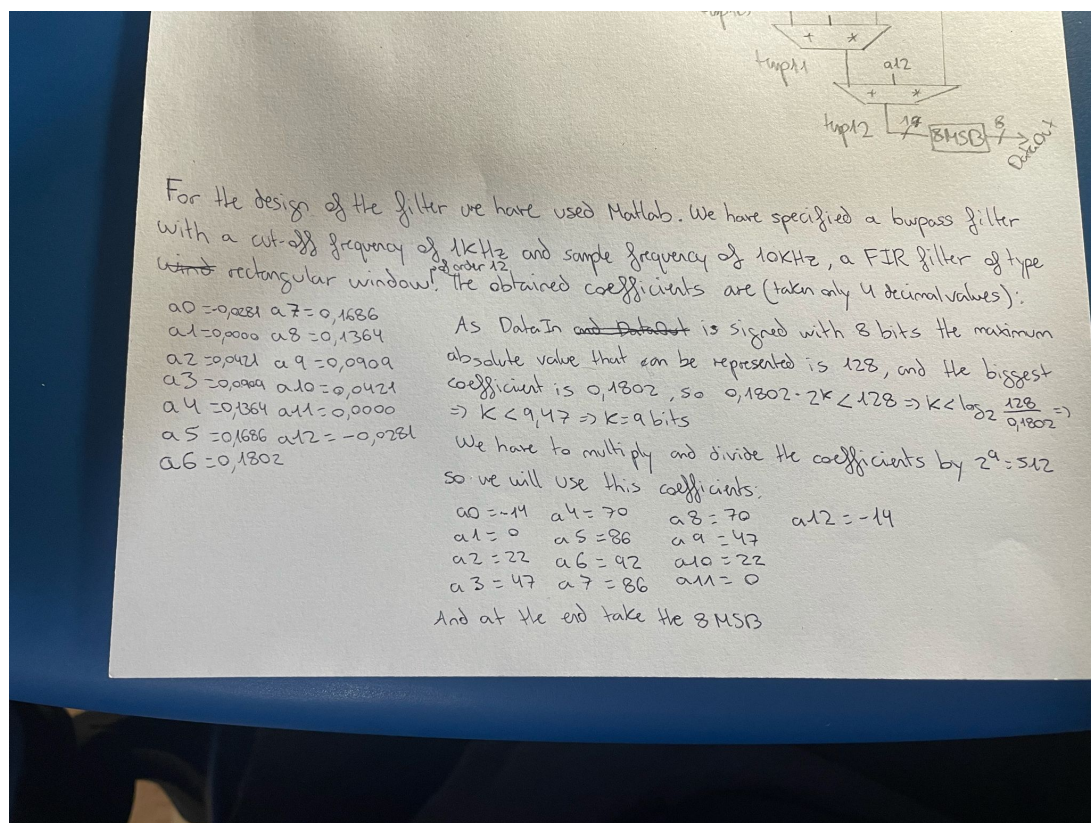 + *
tmp11 a12
+ *
tmp12 17 8MSB 8 DataOut
For the design of the filter we have used Matlab. We have specified a lowpass filter
with a cut-off frequency of 1kHz and sample frequency of 10kHz, a FIR filter of type
wind rectangular window of order 12. The obtained coefficients are (taken only 4 decimal values):
a0=-0,0281 a7=0,1686
a1=0,0000 a8=0,1364
a2=0,0421 a9=0,0909
a3=0,0909 a10=0,0421
a4=0,1364 a11=0,0000
a5=0,1686 a12=-0,0281
a6=0,1802
As DataIn and DataOut is signed with 8 bits the maximum
absolute value that can be represented is 128, and the biggest
coefficient is 0,1802, so 0,1802·2k<128 ⇒ k<log2 128/0,1802 ⇒
⇒ k<9,47 ⇒ k=9 bits
We have to multiply and divide the coefficients by 2^9=512
so we will use this coefficients:
a0=-14 a4=70 a8=70 a12=-14
a1=0 a5=86 a9=47
a2=22 a6=92 a10=22
a3=47 a7=86 a11=0
And at the end take the 8MSB